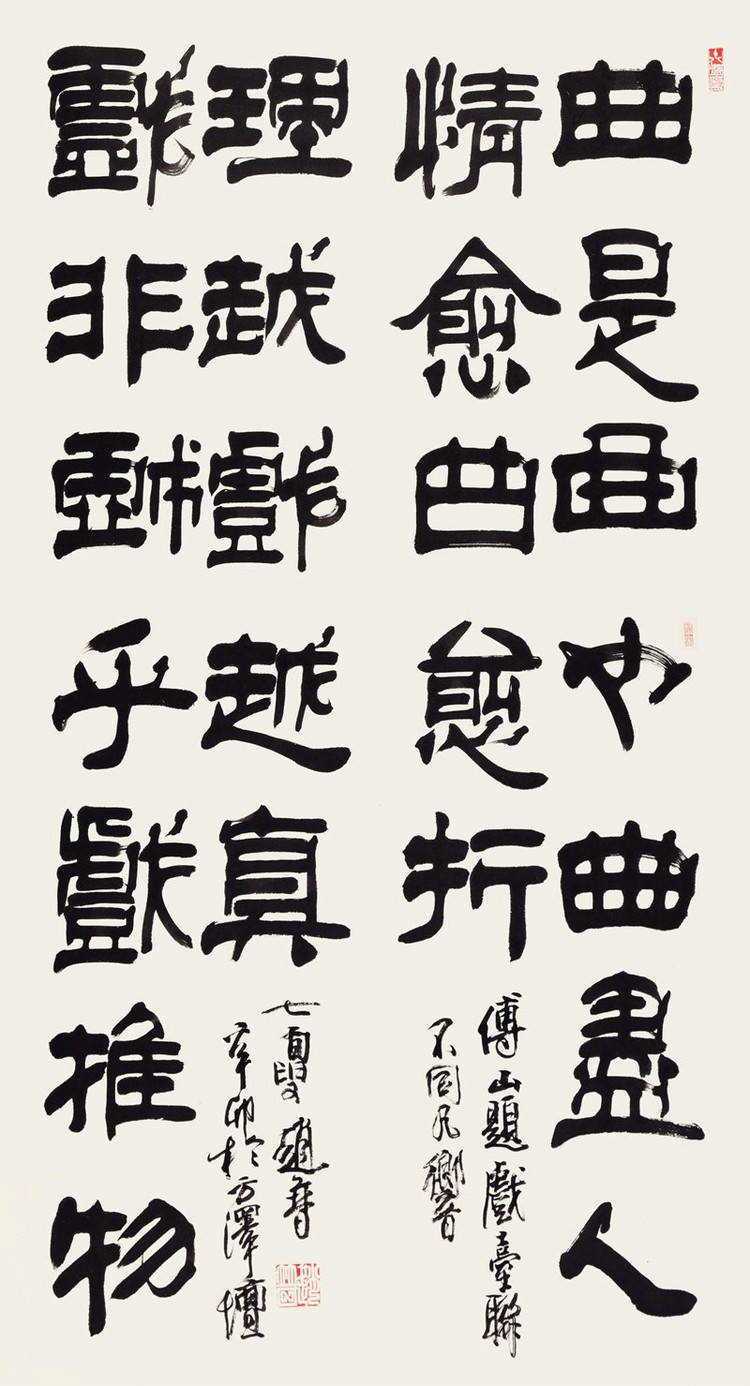 曲是曲也曲盡人
情愈曲愈折
傅山題戲臺聯
不同凡響
戲非戲乎戲推物
理越戲越真
七叟趙
辛卯於方澤壇